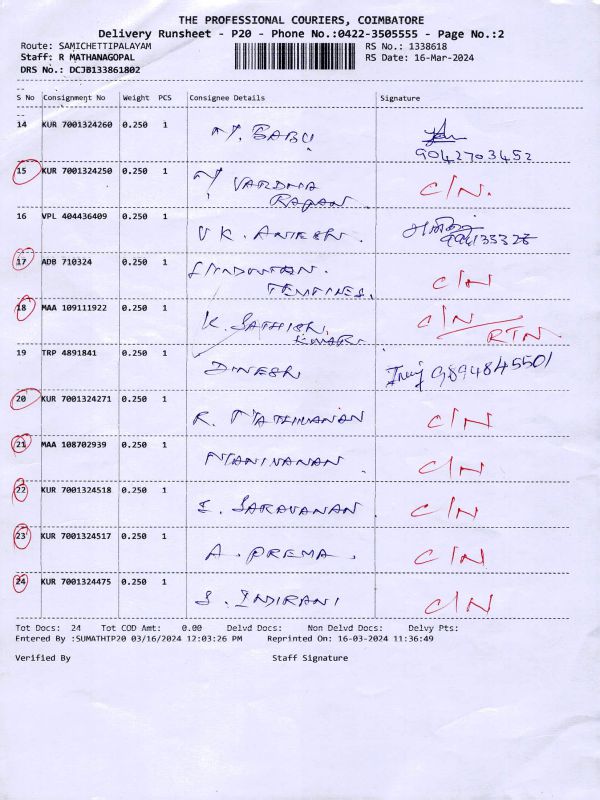 THE PROFESSIONAL COURIERS, COIMBATORE
Delivery Runsheet - P20 - Phone No.:0422-3505555 - Page No.:2
Route: SAMICHETTIPALAYAM RS No.: 1338618
Staff: R MATHANAGOPAL RS Date: 16-Mar-2024
DRS No.: DCJB133861802
S No Consignment No Weight PCS Consignee Details Signature
14 KUR 7001324260 0.250 1 BABU
9042703452
15 KUR 7001324250 0.250 1 VARDHA C/N.
RAJAN
16 VPL 404436409 0.250 1 V K. ANTESH.
17 ADB 710324 0.250 1 C/N
18 MAA 109111922 0.250 1 K. SATHISH C/N
KUMAR RTN
19 TRP 4891841 DINESH 9894845501
20 KUR 7001324271 0.250 1 R. MATHIVANAN C/N
21 MAA 108702939 0.250 1 MANIVANAN C/N
22 KUR 7001324518 0.250 1 SARAVANAN C/N
23 KUR 7001324517 0.250 1 A. PREMA. C/N
24 KUR 7001324475 0.250 1 S. INDIRANI C/N
Tot Docs: 24 Tot COD Amt: 0.00 Delvd Docs: Non Delvd Docs: Delvy Pts:
Entered By :SUMATHIP20 03/16/2024 12:03:26 PM Reprinted On: 16-03-2024 11:36:49
Verified By Staff Signature